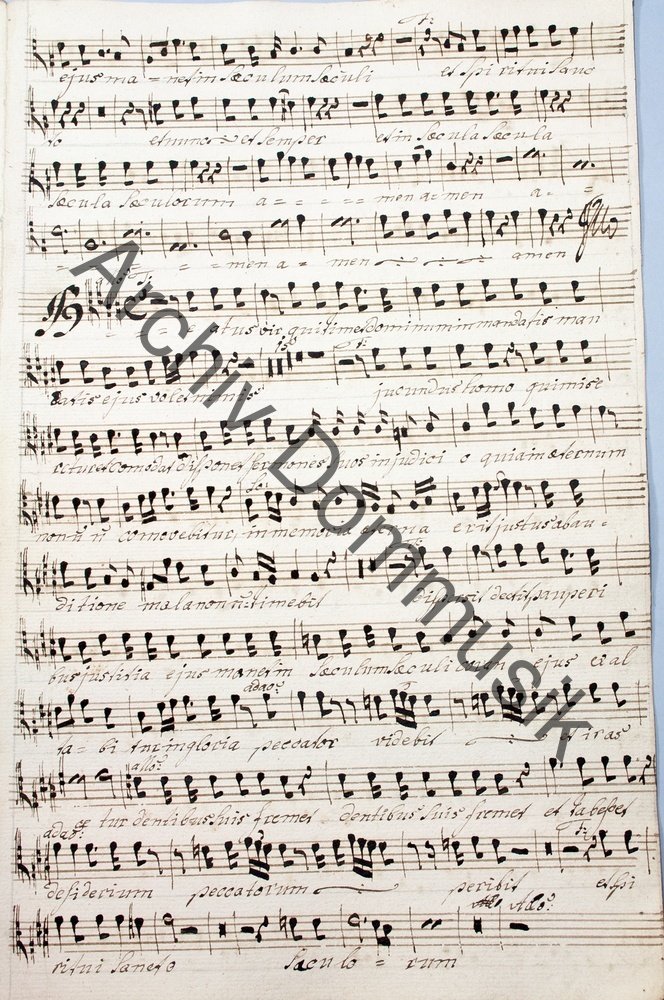 ejus ma = net in Sæculum Sæculi et Spiritui Sanc
to et nunc et Semper et in Sæcula Sæcula
Sæcula Sæculorum a = = = = men a = men a = =
= = = = men a = men amen
B = = = atus vir qui timet Dominum in mandatis man
datis ejus volet nimis jucundus homo qui mise
retur et comodat disponet sermones Suos in judici o quia in æternum
non commovebitur in memoria æterna erit justus ab au =
ditione mala non timebit dispersit dedit pauperi
bus justitia ejus manet in Sæculum Sæculi cornu ejus ex al
adag:
ta = bi tur in gloria peccator videbit et iras
all:
ce tur dentibus Suis fremet dentibus Suis fremet et tabescet
adag:
desiderium peccatorum peribit et Spi
allo:
ritui Sancto Sæculo = rum
Archiv Dommusik